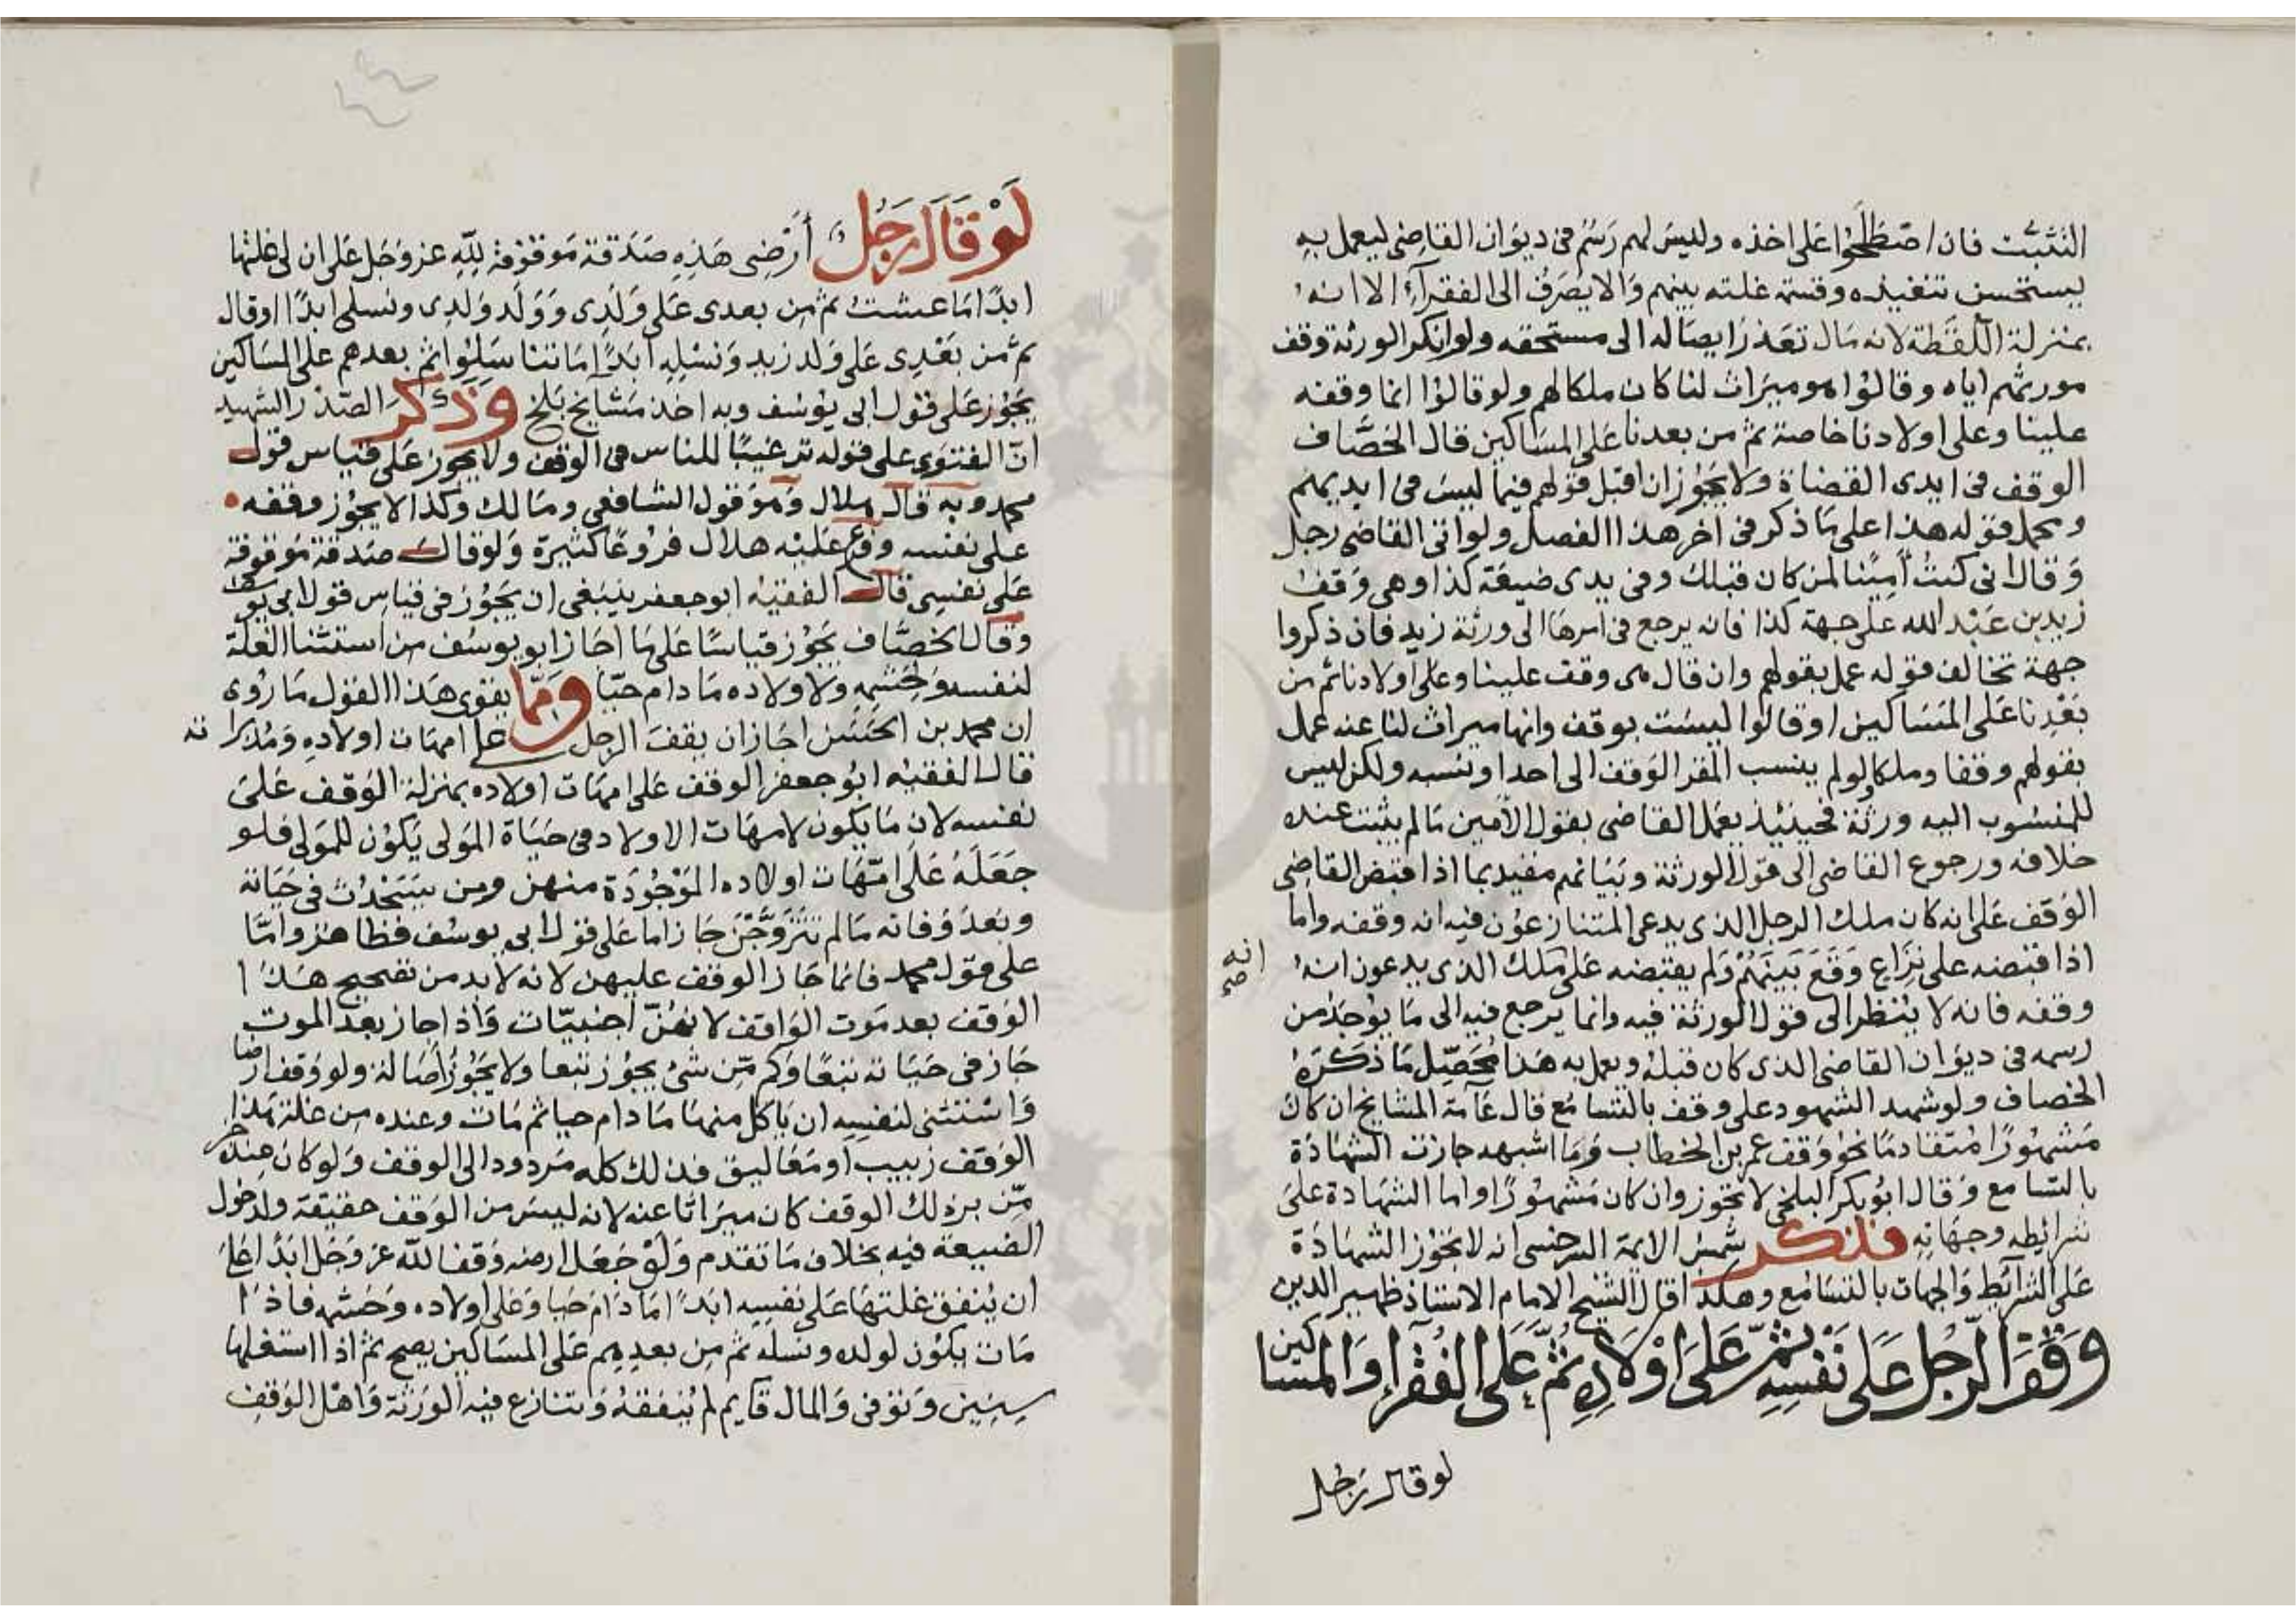 التثبت فان اصطلحوا على اخذه وليس لهم رسم في ديوان القاضي ليعمل به
يستحسن تنفيذه وقسمة غلته بينهم والا يصرف الى الفقرآء الا انه
بمنزلة اللقطة لانه مال تعذر ايصاله الى مستحقه ولو انكر الورثة وقف
مورثهم اياه وقالوا هو ميراث لنا كان ملكا لهم ولو قالوا انما وقفه
علينا وعلى اولادنا خاصة ثم من بعدنا على المساكين قال الخصاف
الوقف في ايدى القضاة ولا يجوز ان اقبل قولهم فيما ليس في ايديهم
ومحمل قوله هذا على ما ذكر في اخر هذا الفصل ولو اتى القاضي رجل
وقال انى كنت امينا لمن كان قبلك وفي يدى ضيعة كذا وهى وقف
زيد بن عبد الله على جهة كذا فانه يرجع في امرها الى ورثة زيد فان ذكروا
جهة تخالف قوله عمل بقولهم وان قال هى وقف علينا وعلى اولادنا ثم من
بعدنا على المساكين او قالوا ليست بوقف وانها ميراث لنا عنه عمل
بقولهم وقفا وملكا ولو لم ينسب المقر الوقف الى احد او نسبه ولكن ليس
للمنسوب اليه ورثة فحينئيذ يعمل القاضي بقول الأمين ما لم يثبت عنده
خلافه ورجوع القاضي الى قول الورثة وبيانهم مفيد بما اذا قبض القاضي
الوقف على انه كان ملك الرجل الذى يدعى المتنازعون فيه انه وقفه واما
اذا قبضه على نزاع وقع بينهم ولم يقبضه على ملك الذى يدعون انه
انه صح
وقفه فانه لا ينظر الى قول الورثة فيه وانما يرجع فيه الى ما يوجد من
رسمه في ديوان القاضي الذى كان قبله ويعمل به هذا محصل ما ذكره
الخصاف ولو شهد الشهود على وقف بالتسامع قال عامة المشايخ ان كان
مشهورا متقادما نحو وقف عمر بن الخطاب وما اشبهه جازت الشهادة
بالتسامع وقال ابو بكر البلخى لا تجوز وان كان مشهورا واما الشهادة على
شرايطه وجهاته فذكر شمس الايمة السرخسى انه لا يجوز الشهادة
على الشرآيط والجهات بالتسامع وهكذا قال الشيخ الامام الاستاذ ظهير الدين
وقف الرجل على نفسه ثم على اولاده ثم على الفقرا والمساكين
لو قال رجل
لو قال رجل ارضى هذه صدقة موقوفة لله عز وجل على ان لى غلتها
ابدا ما عشت ثم من بعدى على ولدى وولد ولدى ونسلى ابدا او قال
ثم من بعدى على ولد زيد ونسله ابدا ما تناسلوا ثم بعدهم على المساكين
يجوز على قول ابى يوسف وبه اخذ مشايخ بلخ وذكر الصدر الشهيد
ان الفتوى على قوله ترغيبا للناس في الوقف ولا يجوز على قياس قول
محمد وبه قال هلال وهو قول الشافعى ومالك وكذا لا يجوز وقفه
على نفسه وفرع عليه هلال فروعا كثيرة ولو قال صدقة موقوفة
على نفسى قال الفقيه ابو جعفر ينبغى ان يجوز في قياس قول ابى يوسف
وقال الخصاف يجوز قياسا على ما اجاز ابو يوسف من استثنا الغلة
لنفسه وحشمه ولاولاده ما دام حيا ومما يقوى هذا القول ما روى
ان محمد بن الحسن اجاز ان يقف الرجل على امهات اولاده ومدبراته
قال الفقيه ابو جعفر الوقف على امهات اولاده بمنزلة الوقف على
نفسه لان ما يكون لامهات الاولاد في حياة المولى يكون للمولى فلو
جعله على امهات اولاده الموجودة منهن ومن يستحدث في حياته
وبعد وفاته ما لم تتزوجن جاز اما على قول ابى يوسف فظاهر واما
على قول محمد فانما جاز الوقف عليهن لانه لا بد من تصحيح هذا
الوقف بعد موت الواقف لانهن اجنبيات واذا جاز بعد الموت
جاز في حياته تبعا وكم من شئ يجوز تبعا ولا يجوز اصالة ولو وقف ارضا
واستثنى لنفسه ان ياكل منها ما دام حيا ثم مات وعنده من غلة هذا
الوقف زبيب او معاليق فذلك كله مردود الى الوقف ولو كان عنده خبز
من بر ذلك الوقف كان ميراثا عنه لانه ليس من الوقف حقيقة ولدخول
الضيعة فيه بخلاف ما تقدم ولو جعل ارضه وقفا لله عز وجل ابدا على
ان ينفق غلتها على نفسه ابدا ما دام حيا وعلى اولاده وحشمه فاذا
مات يكون لولده ونسله ثم من بعدهم على المساكين يصح ثم اذا استغلها
سنين وتوفى والمال قآيم لم ينفقه وتنازع فيه الورثة واهل الوقف